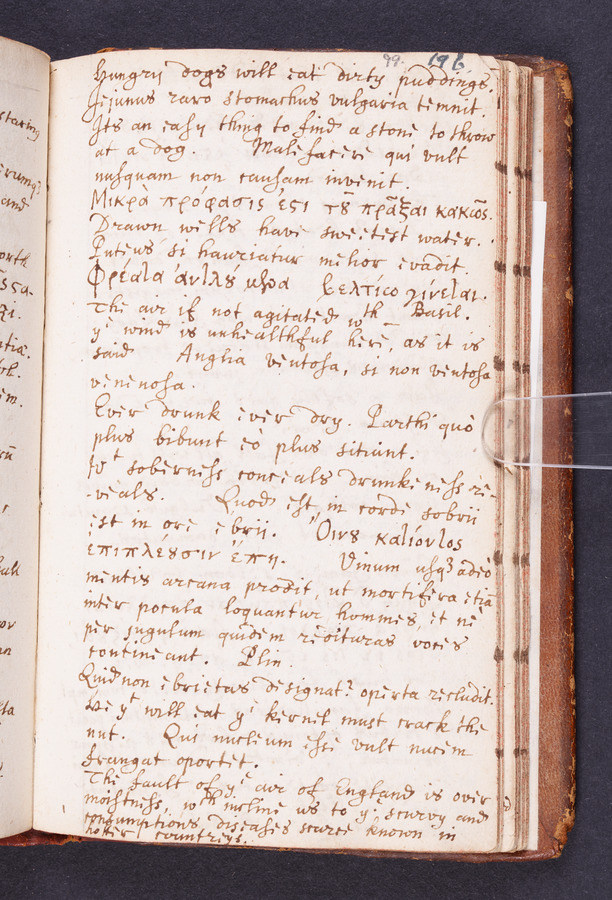 99. 196
Hungry dogs will eat dirty puddings.
Jejunus raro stomachus vulgaria temnit.
Its an easy thing to find a stone to throw
at a dog. Malefacere qui vult
nusquam non causam invenit.
Μικρὰ πρόφασις ἐςι τȣ͂ πρᾶξαι κακῶς.
Drawn wells have sweetest water.
Puteus si hauriatur melior evadit.
Φρέαῖα ἀνῖλȣ́μενα βελτίω γίνεῖαι.
The air if not agitated wth Basil.
ye wind is unhealthful here, as it is
said Anglia ventosa, si non ventosa
venenosa.
Ever drunk ever dry. Parthi quò
plus bibunt eo plus sitiunt.
Wt soberness conceals drunkeness re-
-veals. Quod est in corde sobrii
est in ore ebrii. Οἴνȣ καῖιόνῖος
ἐπιπλέȣσιν ἔπη. Vinum usqz adeò
mentis arcana prodit, ut mortifera etiā
inter pocula loquantur homines, et ne
per jugulum quidem redituras voces
contineant. Plin.
Quid non ebrietas designat? operta recludit.
He yt will eat ye kernel must crack the
nut. Qui nucleum esse vult nucem
frangat oportet.
The fault of ye air of England is over
moistness, wch incline us to ye scurvy and
consumptions diseases scarce known in
hoter countreys.